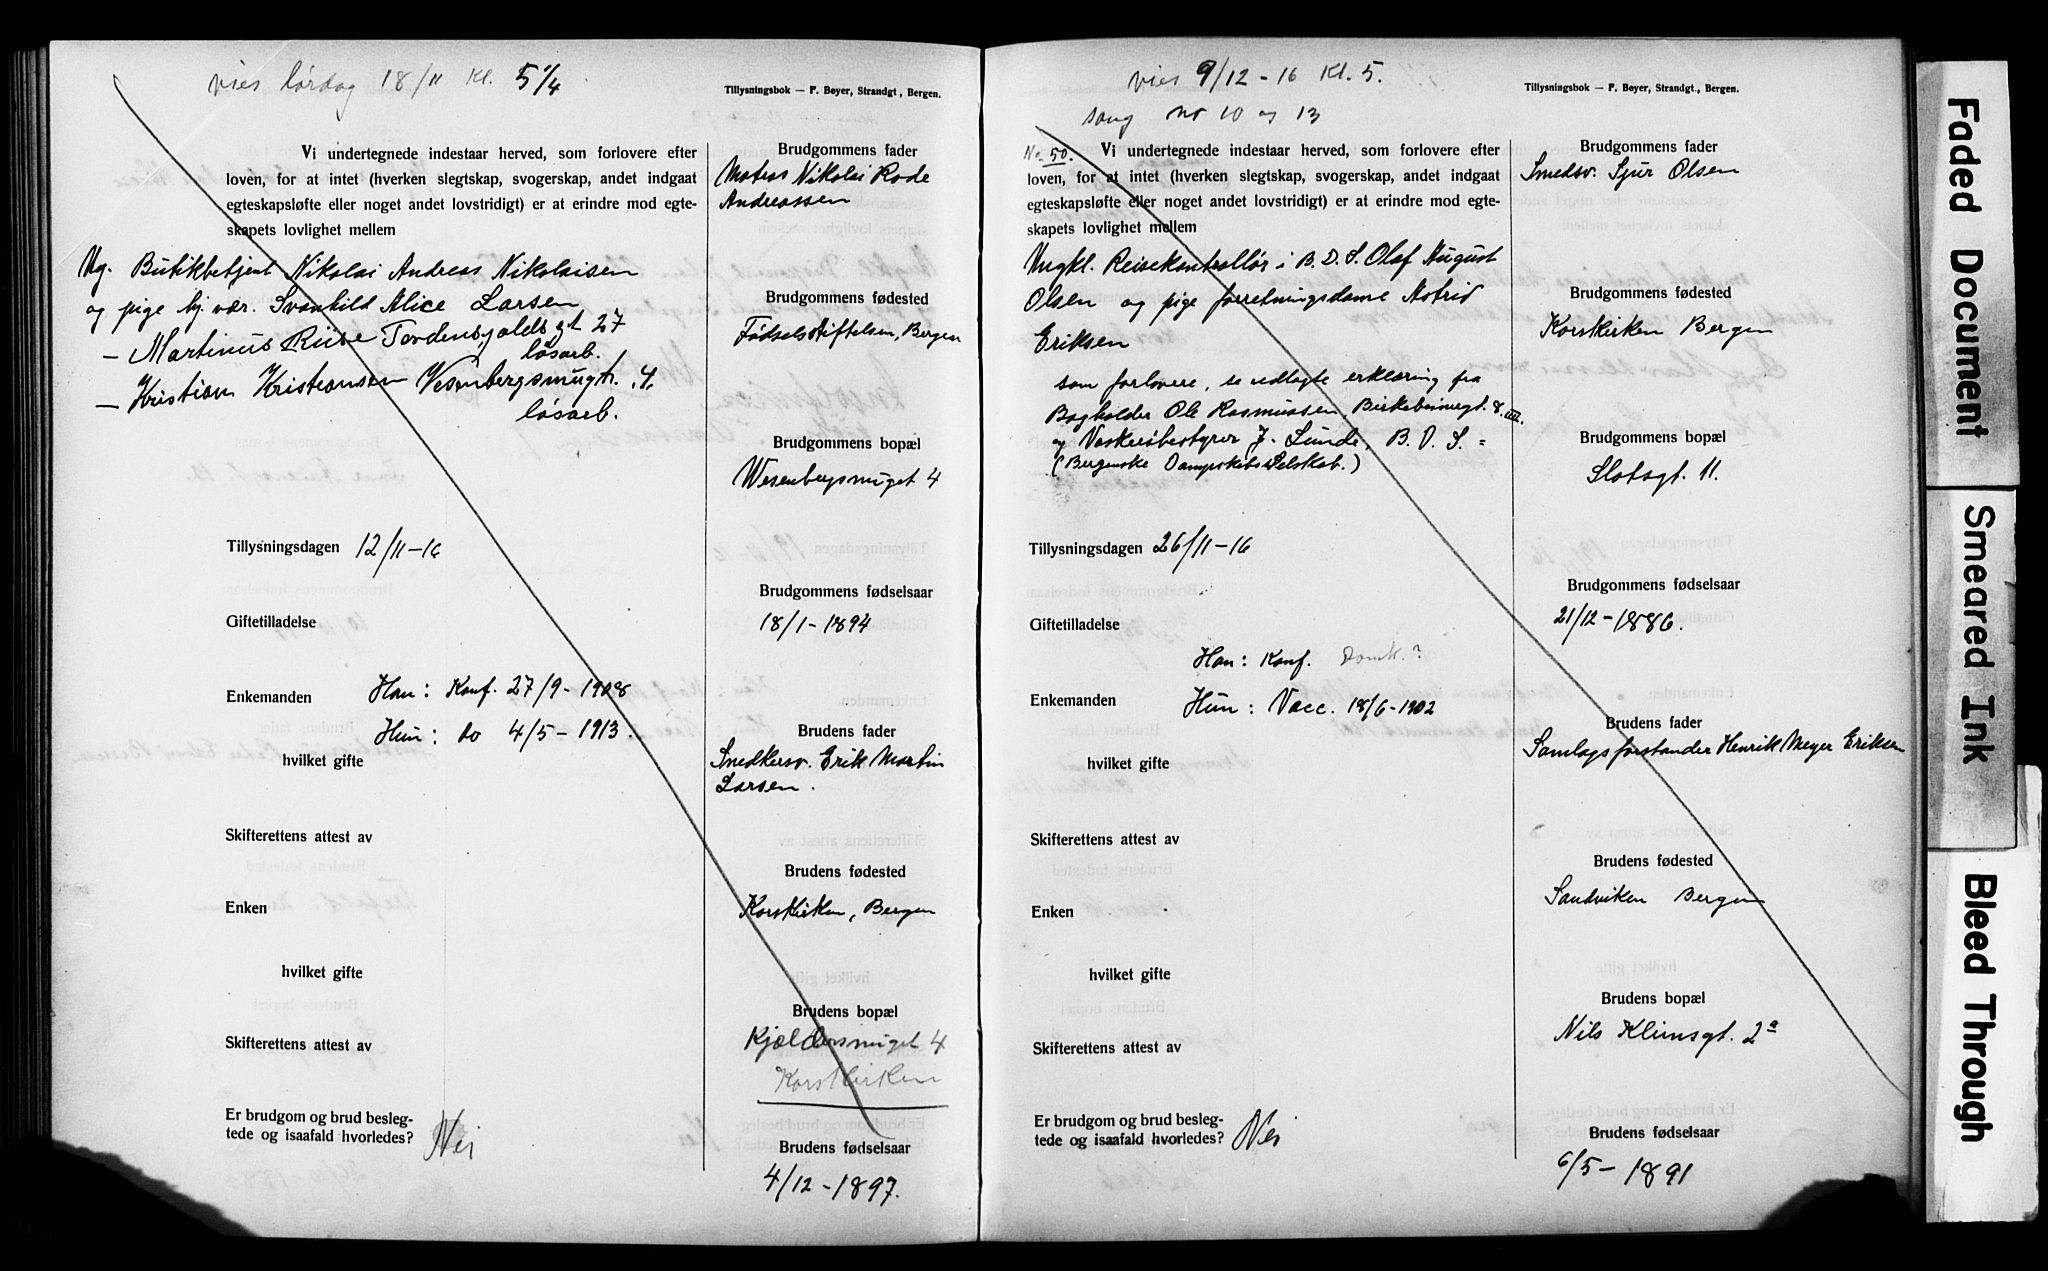 vies lørdag 18/11 Kl. 5 1/4
Tillysningsbok — F. Bøyer, Strandgt., Bergen.
Vi undertegnede indestaar herved, som forlovere efter
loven, for at intet (hverken slegtskap, svogerskap, andet indgaat
egteskapsløfte eller noget andet lovstridigt) er at erindre mod egte-
skapets lovlighet mellem
Ug. Butikbetjent Nikolai Andreas Nikolaisen
og pige hj. vær. Svanhild Alice Larsen
— Martinus Riise Tordenskjolds gt 27
løsarb.
— Kristian Kristiansen Vesenbergsmugt. 4.
løsarb.
Tillysningsdagen 12/11-16
Giftetilladelse
Enkemanden Han: Konf. 27/9-1908
Hun: do 4/5-1913.
hvilket gifte
Skifterettens attest av
Enken
hvilket gifte
Skifterettens attest av
Er brudgom og brud besleg-
tede og isaafald hvorledes? Nei
Brudgommens fader
Matros Nikolai Rode
Andreassen
Brudgommens fødested
Fødselsstiftelsen, Bergen
Brudgommens bopæl
Wesenbergsmuget 4
Brudgommens fødselsaar
18/1-1894
Brudens fader
Snedkersv. Erik Martin
Larsen.
Brudens fødested
Korskirken, Bergen
Brudens bopæl
Kjældersmuget 4
Korskirken
Brudens fødselsaar
4/12-1897.
vies 9/12-16 Kl. 5.
sang no 10 og 13
Tillysningsbok — F. Bøyer, Strandgt., Bergen.
No. 50. Vi undertegnede indestaar herved, som forlovere efter
loven, for at intet (hverken slegtskap, svogerskap, andet indgaat
egteskapsløfte eller noget andet lovstridigt) er at erindre mod egte-
skapets lovlighet mellem
Ungkl. Reisekontrollør i B.D.S. Olaf August
Olsen og pige forretningsdame Astrid
Eriksen
som forlovere, se vedlagte erklæring fra
Bogholder Ole Rasmussen, Birkebeinergt. 8. III.
og Vaskeribestyrer J. Lunde, B. D. S. =
(Bergenske Dampskibs Selskab.)
Tillysningsdagen 26/11-16
Giftetilladelse
Han: Konf. Domk.?
Enkemanden Hun: Vacc. 18/6-1902
hvilket gifte
Skifterettens attest av
Enken
hvilket gifte
Skifterettens attest av
Er brudgom og brud besleg-
tede og isaafald hvorledes? Nei
Brudgommens fader
Smedsv. Sjur Olsen
Brudgommens fødested
Korskirken Bergen
Brudgommens bopæl
Slotsgt. 11.
Brudgommens fødselsaar
21/12-1886.
Brudens fader
Samlagsforstander Henrik Meyer Eriksen
Brudens fødested
Sandviken Bergen
Brudens bopæl
Nils Klimsgt. 2a
Brudens fødselsaar
6/5-1891
Faded Document
Smeared Ink
Bleed Through